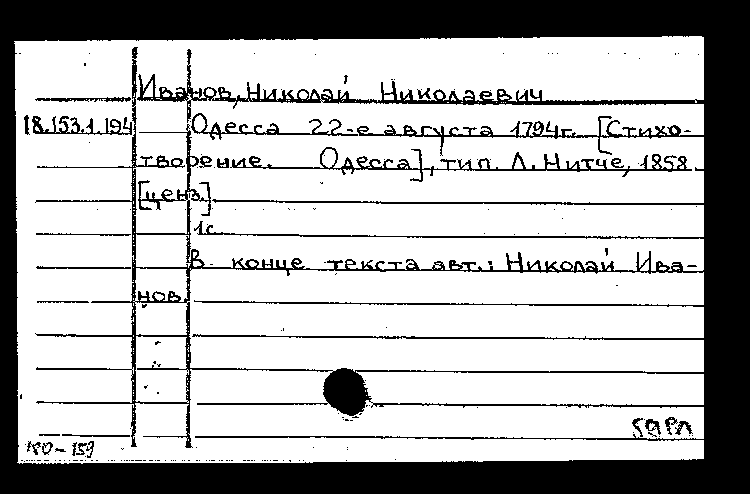 Иванов, Николай Николаевич
18.153.1.194 Одесса 22-е августа 1794г. [Стихо-
творение. Одесса], тип. Л. Нитче, 1858
[ценз.].
1с.
В конце текста авт.: Николай Ива-
нов.
180-159